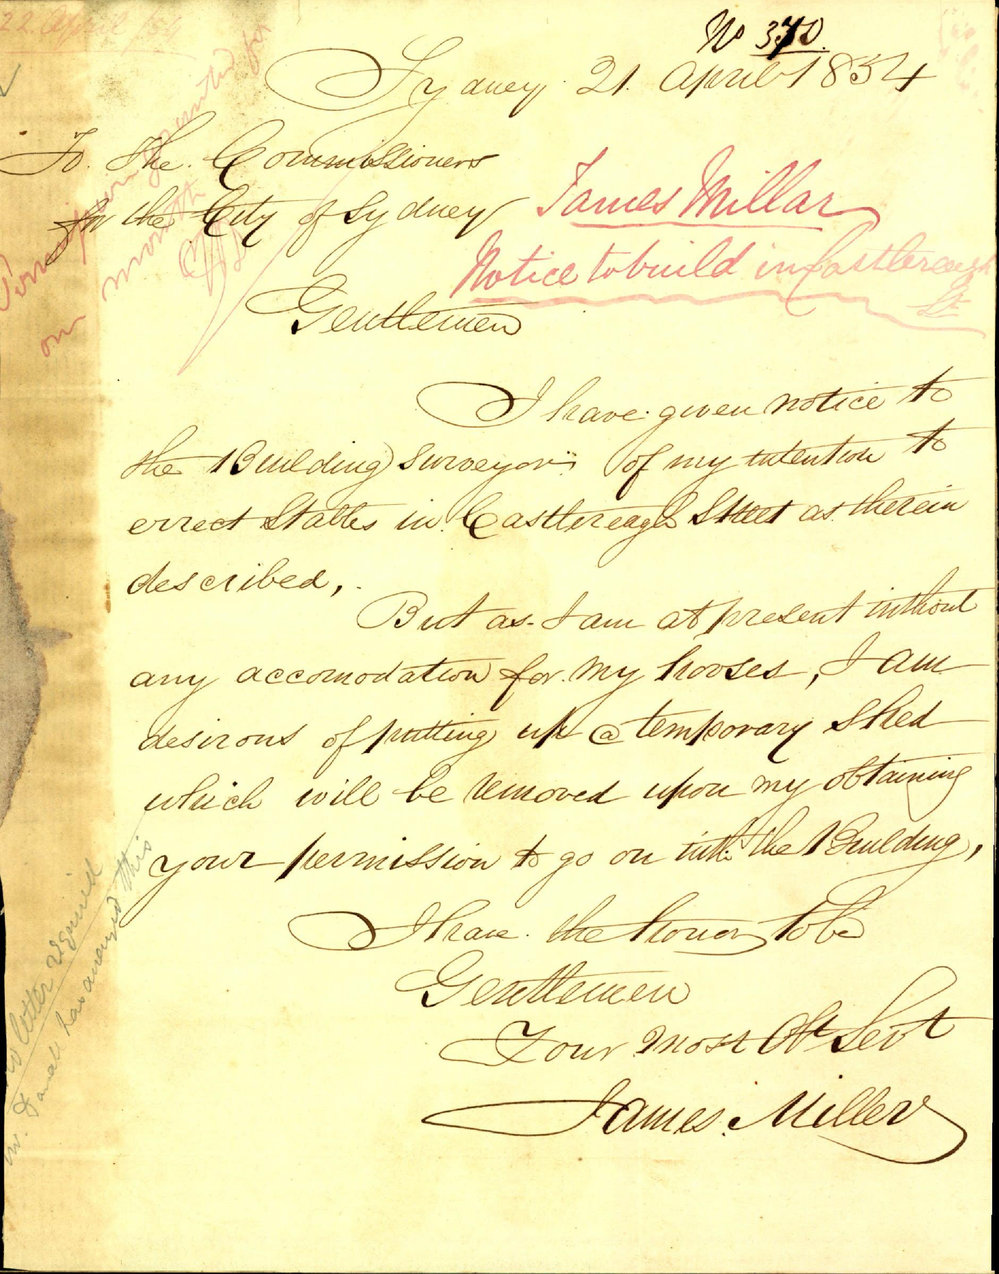 No 370.
22 April /54
Sydney 21. April 1854
To. The. Commissioners
for the City of Sydney
James Millar
Notice to build in Castlereagh
St.
Permission granted for
one month
Gentlemen
I have given notice to
the Building Surveyor of my intention to
errect Stables in Castlereagh Street as therein
described,
But as I am at present without
any accomodation for my horses, I am
desirous of putting up a temporary Shed
which will be removed upon my obtaining
your permission to go on with the Building,
I have the honor to be
Gentlemen
Your Most Obt Servt
James Miller
No letter required
Mr. has arranged this